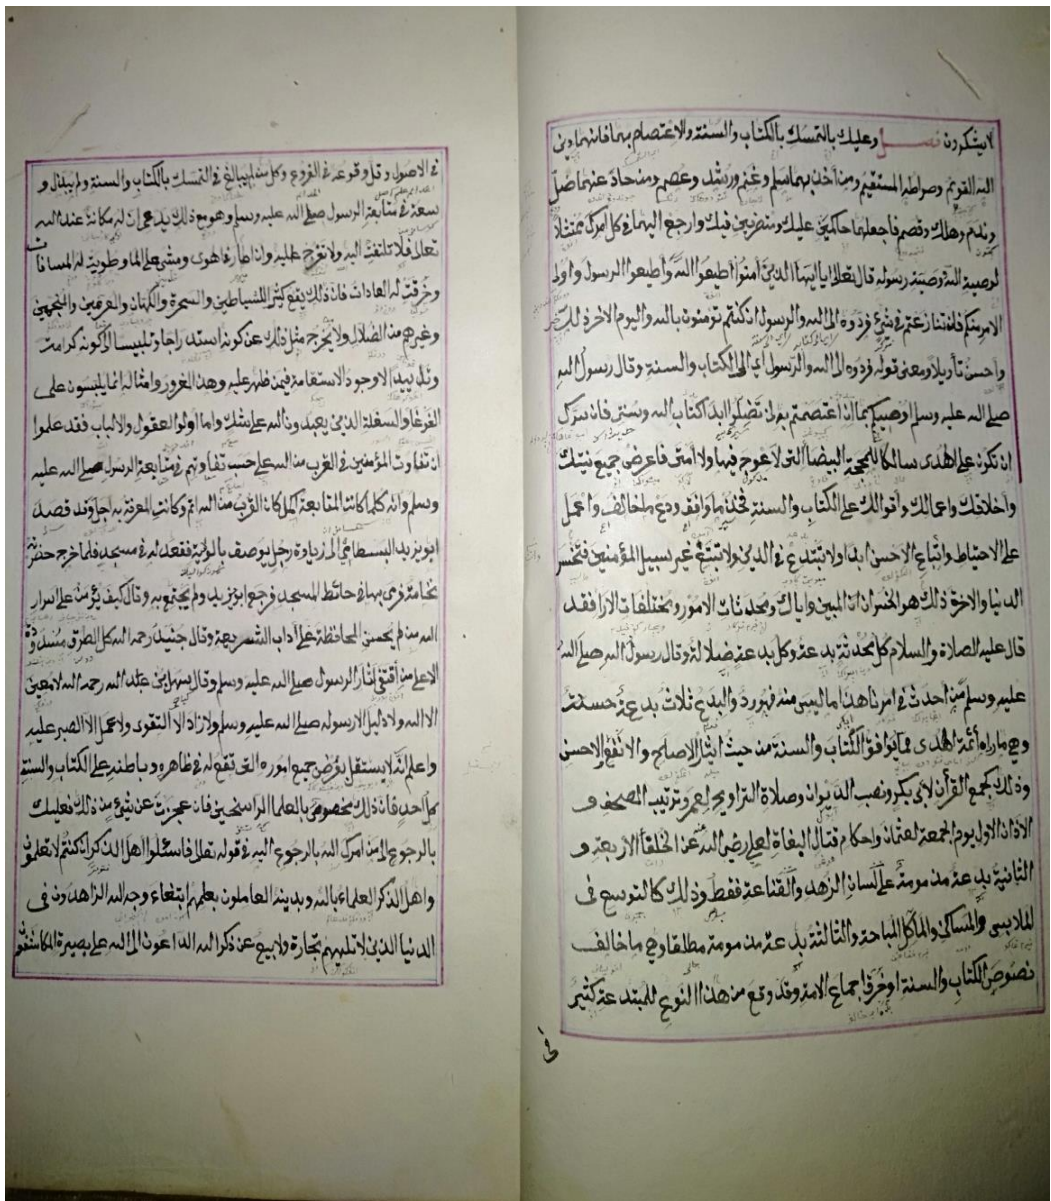 لا يشكرون فصل وعليك بالتمسك بالكتاب والسنة والاعتصام بهما فانهما دين
الله القويم وصراطه المستقيم ومن أخذ بهما سلم وغنم ورشد وعصم ومن حاد عنهما ضل
وندم وهلك وقصم فاجعلهما حاكمين عليك ومتصرفين فيك وارجع اليهما في كل أمرك ممتثلا
لوصية الله ووصية رسوله قال تعالى يا ايها الذين آمنوا أطيعوا الله وأطيعوا الرسول واولى
الامر منكم فان تنازعتم في شئ فردوه الى الله والرسول ان كنتم تومنون بالله واليوم الاخر ذلك خير
واحسن تأويلا ومعنى قوله فردوه الى الله والرسول اي الى الكتاب والسنة وقال رسول الله
صلى الله عليه وسلم اوصيكم بما ان اعتصمتم به لن تضلوا ابدا كتاب الله وسنتي فان سرك
ان تكون على الهدى سالكا للمحجة البيضا التى لا عوج فيها ولا أمتى فاعرض جميع نيتك
وأخلاقك واعمالك وأقوالك على الكتاب والسنة فخذ ما وافق ودع ما خالف واعمل
على الاحتياط واتباع الاحسن ابدا ولا تبتدع في الدين ولا تتبع غير سبيل المؤمنين فتخسر
الدنيا والاخرة ذلك هو الخسران المبين واياك ومحدثات الامور ومختلفات الارا فقد
قال عليه الصلاة والسلام كل محدثة بدعة وكل بدعة ضلالة وقال رسول الله صلى الله
عليه وسلم من احدث في امرنا هذا ما ليس منه فهو رد والبدع ثلاث بدعة حسنة
وهي ما راه أئمة الهدى مما يوافق الكتاب والسنة من حيث ايثار الاصلح والانفع والاحسن
وذلك كجمع القرآن لابي بكر ونصب الديوان وصلاة التراويح لعمر وترتيب المصحف و
الاذان الاول يوم الجمعة لعثمان واحكام قتال البغاة لعلي رضي الله عن الخلفا الاربعة و
الثانية بدعة مذمومة على لسان الزهد والقناعة فقط وذلك كالتوسع في
الملابس والمساكن والمآكل المباحة والثالثة بدعة مذمومة مطلقا وهي ما خالف
نصوص الكتاب والسنة او خرق اجماع الامة وقد وقع من هذا النوع للمبتدعة كثير
فى
في الاصول وقل وقوعه في الفروع وكل من لم يبالغ في التمسك بالكتاب والسنة ولم يبذل و
سعه في متابعة الرسول صلى الله عليه وسلم وهو مع ذلك يدعى ان له مكانة عند الله
تعالى فلا تلتفت اليه ولا تعرج عليه وان طار في الهوى ومشى على الما وطويت له المسافات
وخرقت له العادات فان ذلك يقع كثيرا للشياطين والسحرة والكهان والعرافين والمنجمين
وغيرهم من الضلال ولا يخرج مثل ذلك عن كونه استدراجا وتلبيسا الى كونه كرامة
وتاييدا الا وجود الاستقامة فيمن ظهر عليه وهذا المغرور وامثاله انما يلبسون على
الغوغا والسفلة الذين يعبدون الله على شك واما اولوا العقول والالباب فقد علموا
ان تفاوت المؤمنين في القرب من الله على حسب تفاوتهم في متابعة الرسول صلى الله عليه
وسلم وانه كلما كانت المتابعة اكمل كان القرب من الله اتم وكانت المعرفة به اجل وقد قصد
ابو يزيد البسطامي الى زيارة رجل يوصف بالولاية فقعد له في مسجد فلما خرج حضرته
نخامة فرمى بها في حائط المسجد فرجع ابو يزيد ولم يجتمع به وقال كيف يؤمن على اسرار
الله من لم يحسن المحافظة على آداب الشريعة وقال جنيد رحمه الله كل الطرق مسدودة
الا على من أقتفى آثار الرسول صلى الله عليه وسلم وقال سهل بن عبد الله رحمه الله لا معين
الا الله ولا دليل الا رسوله صلى الله عليه وسلم ولا زاد الا التقوى ولا عمل الا الصبر عليه
واعلم انه لا يستقل بعرض جميع اموره التى تقع له في ظاهره وباطنه على الكتاب والسنة
كل احد فان ذلك مخصوص بالعلما الراسخين فان عجزت عن شئ من ذلك فعليك
بالرجوع الى من امرك الله بالرجوع اليه في قوله تعالى فاسئلوا اهل الذكر ان كنتم لا تعلمون
واهل الذكر العلماء بالله وبدينه العاملون بعلمهم ابتغاء وجه الله الزاهدون فى
الدنيا الذين لا تلهيهم تجارة ولا بيع عن ذكر الله الداعون الى الله على بصيرة المكاشفون